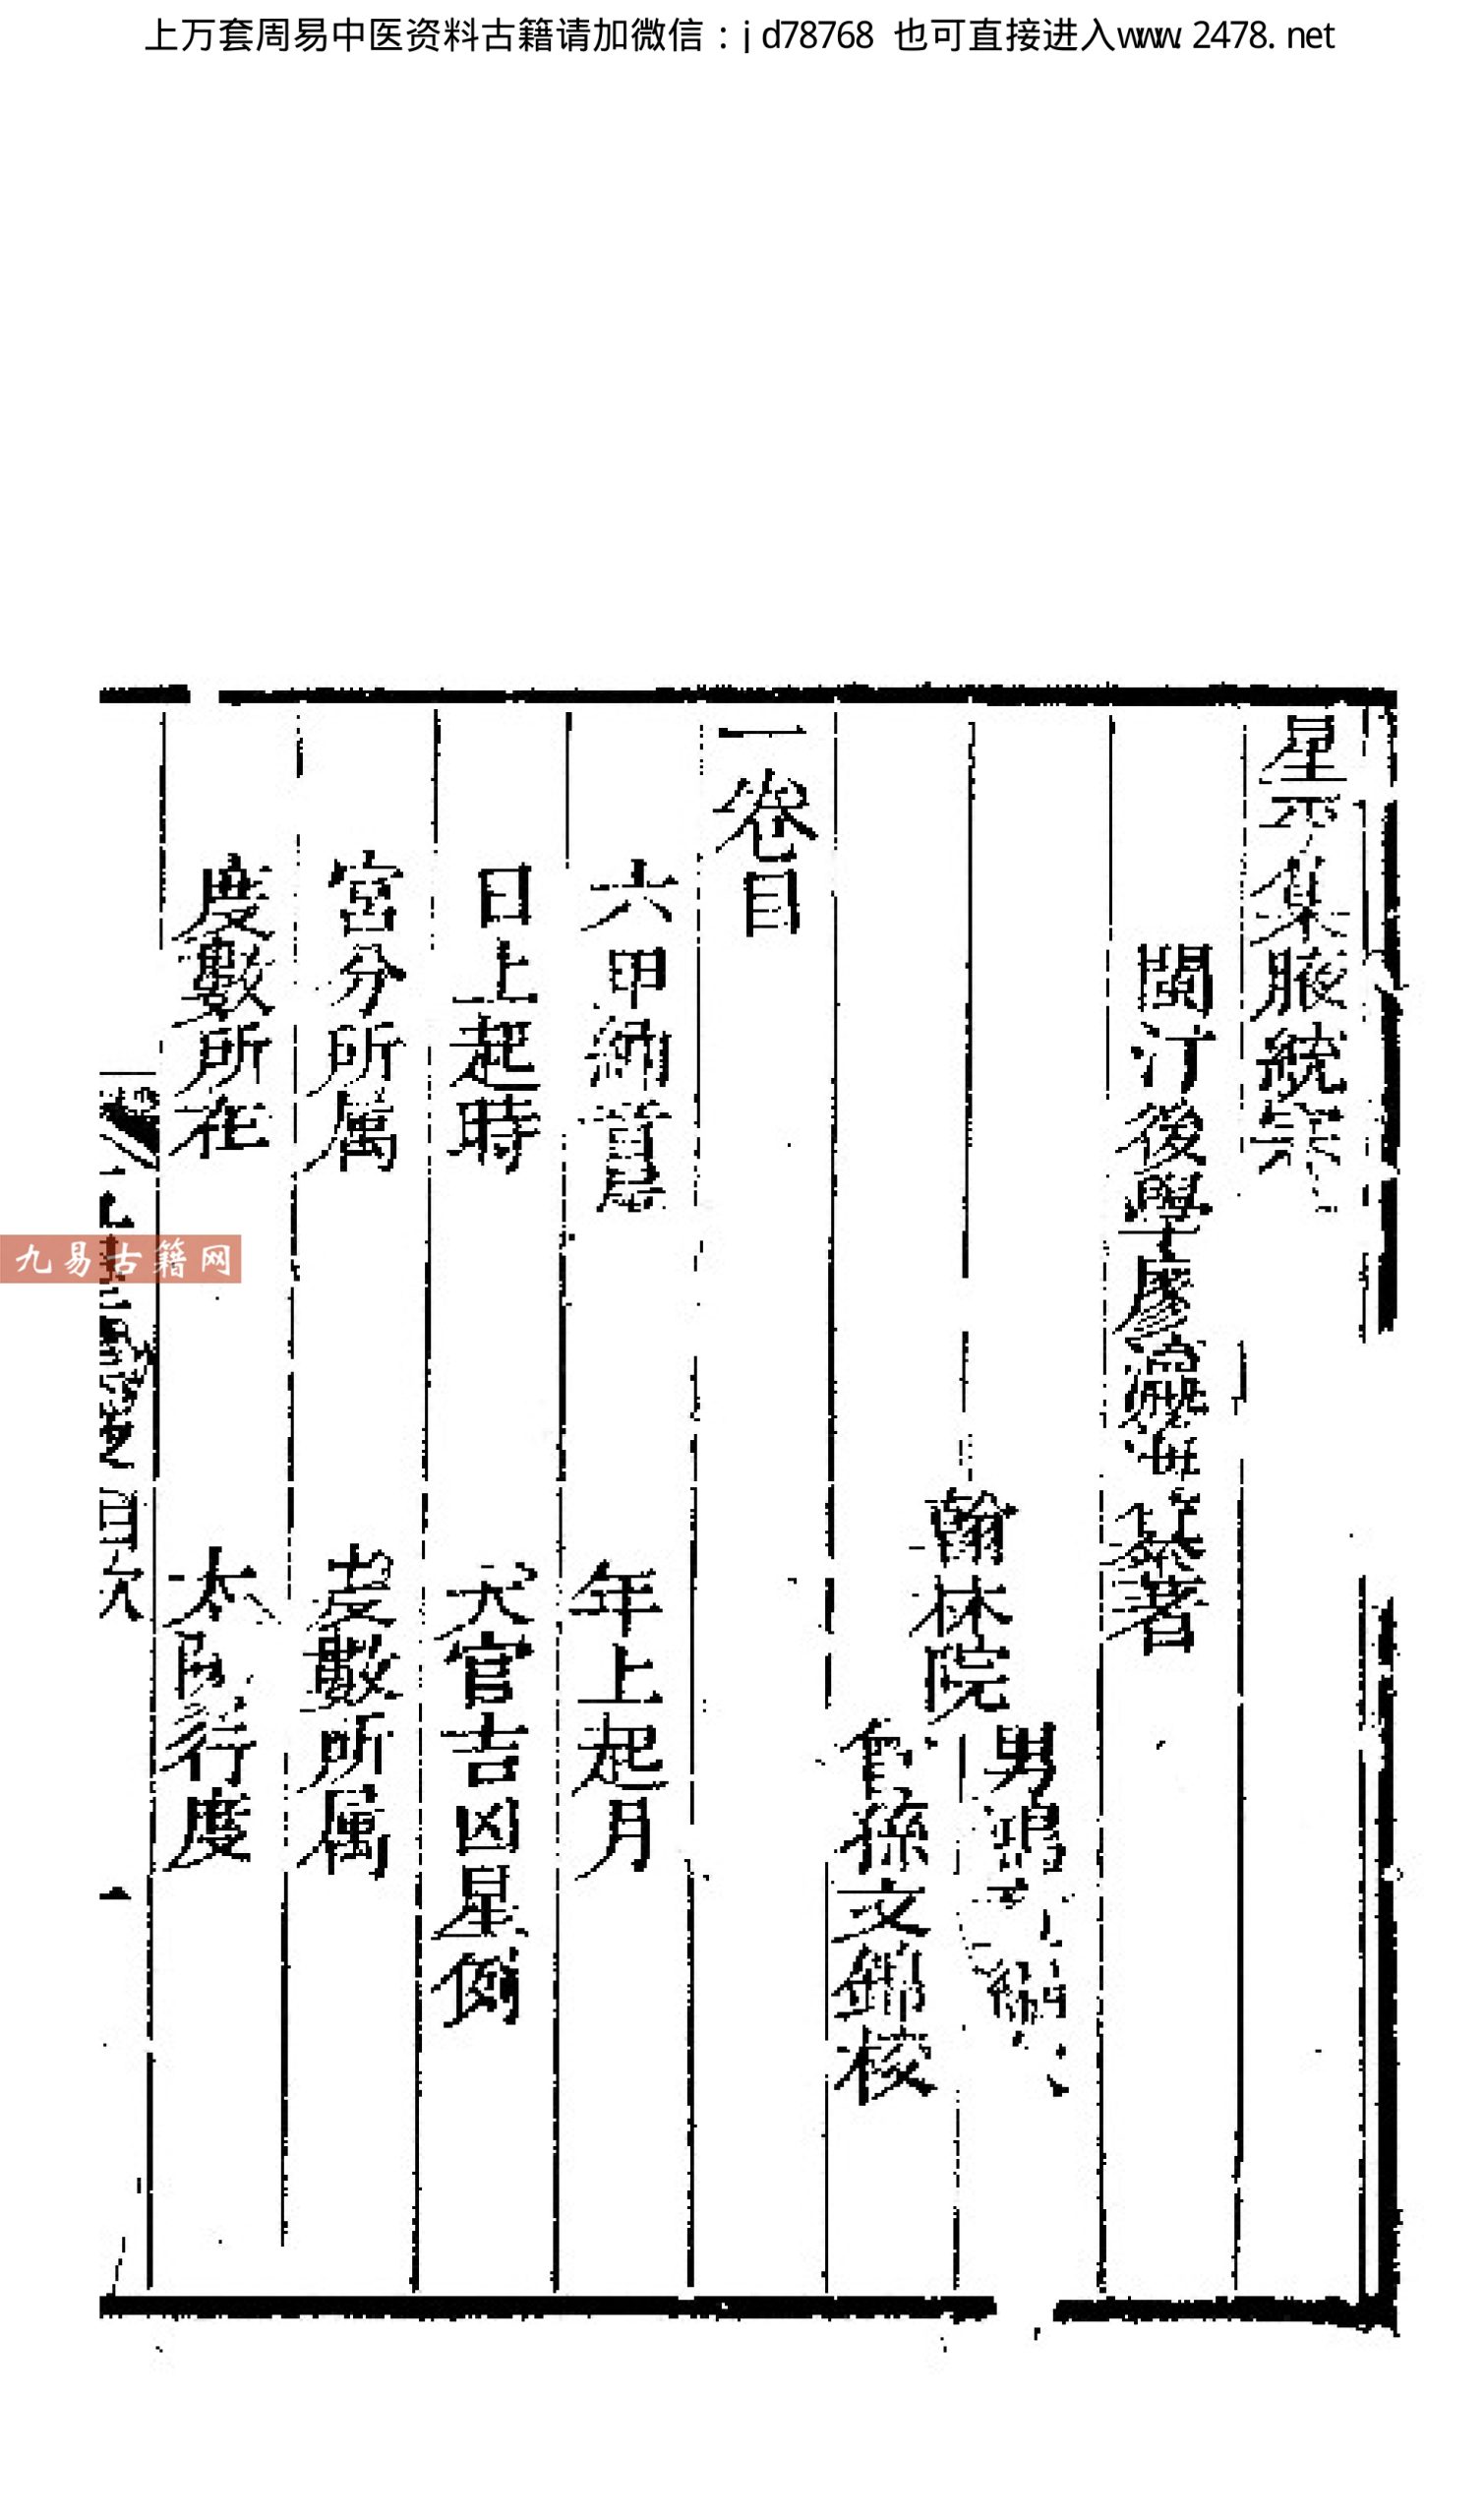 上万套周易中医资料古籍请加微信：jd78768 也可直接进入www.2478.net
星平集腋統宗
閩汀後學廖瀛海纂著
翰林院
男鴻
曾孫文錦校
一卷目
六甲納音 年上起月
日上起時 天官吉凶星例
宮分所屬 度數所屬
度數所在 太陽行度
目次
九易古籍网